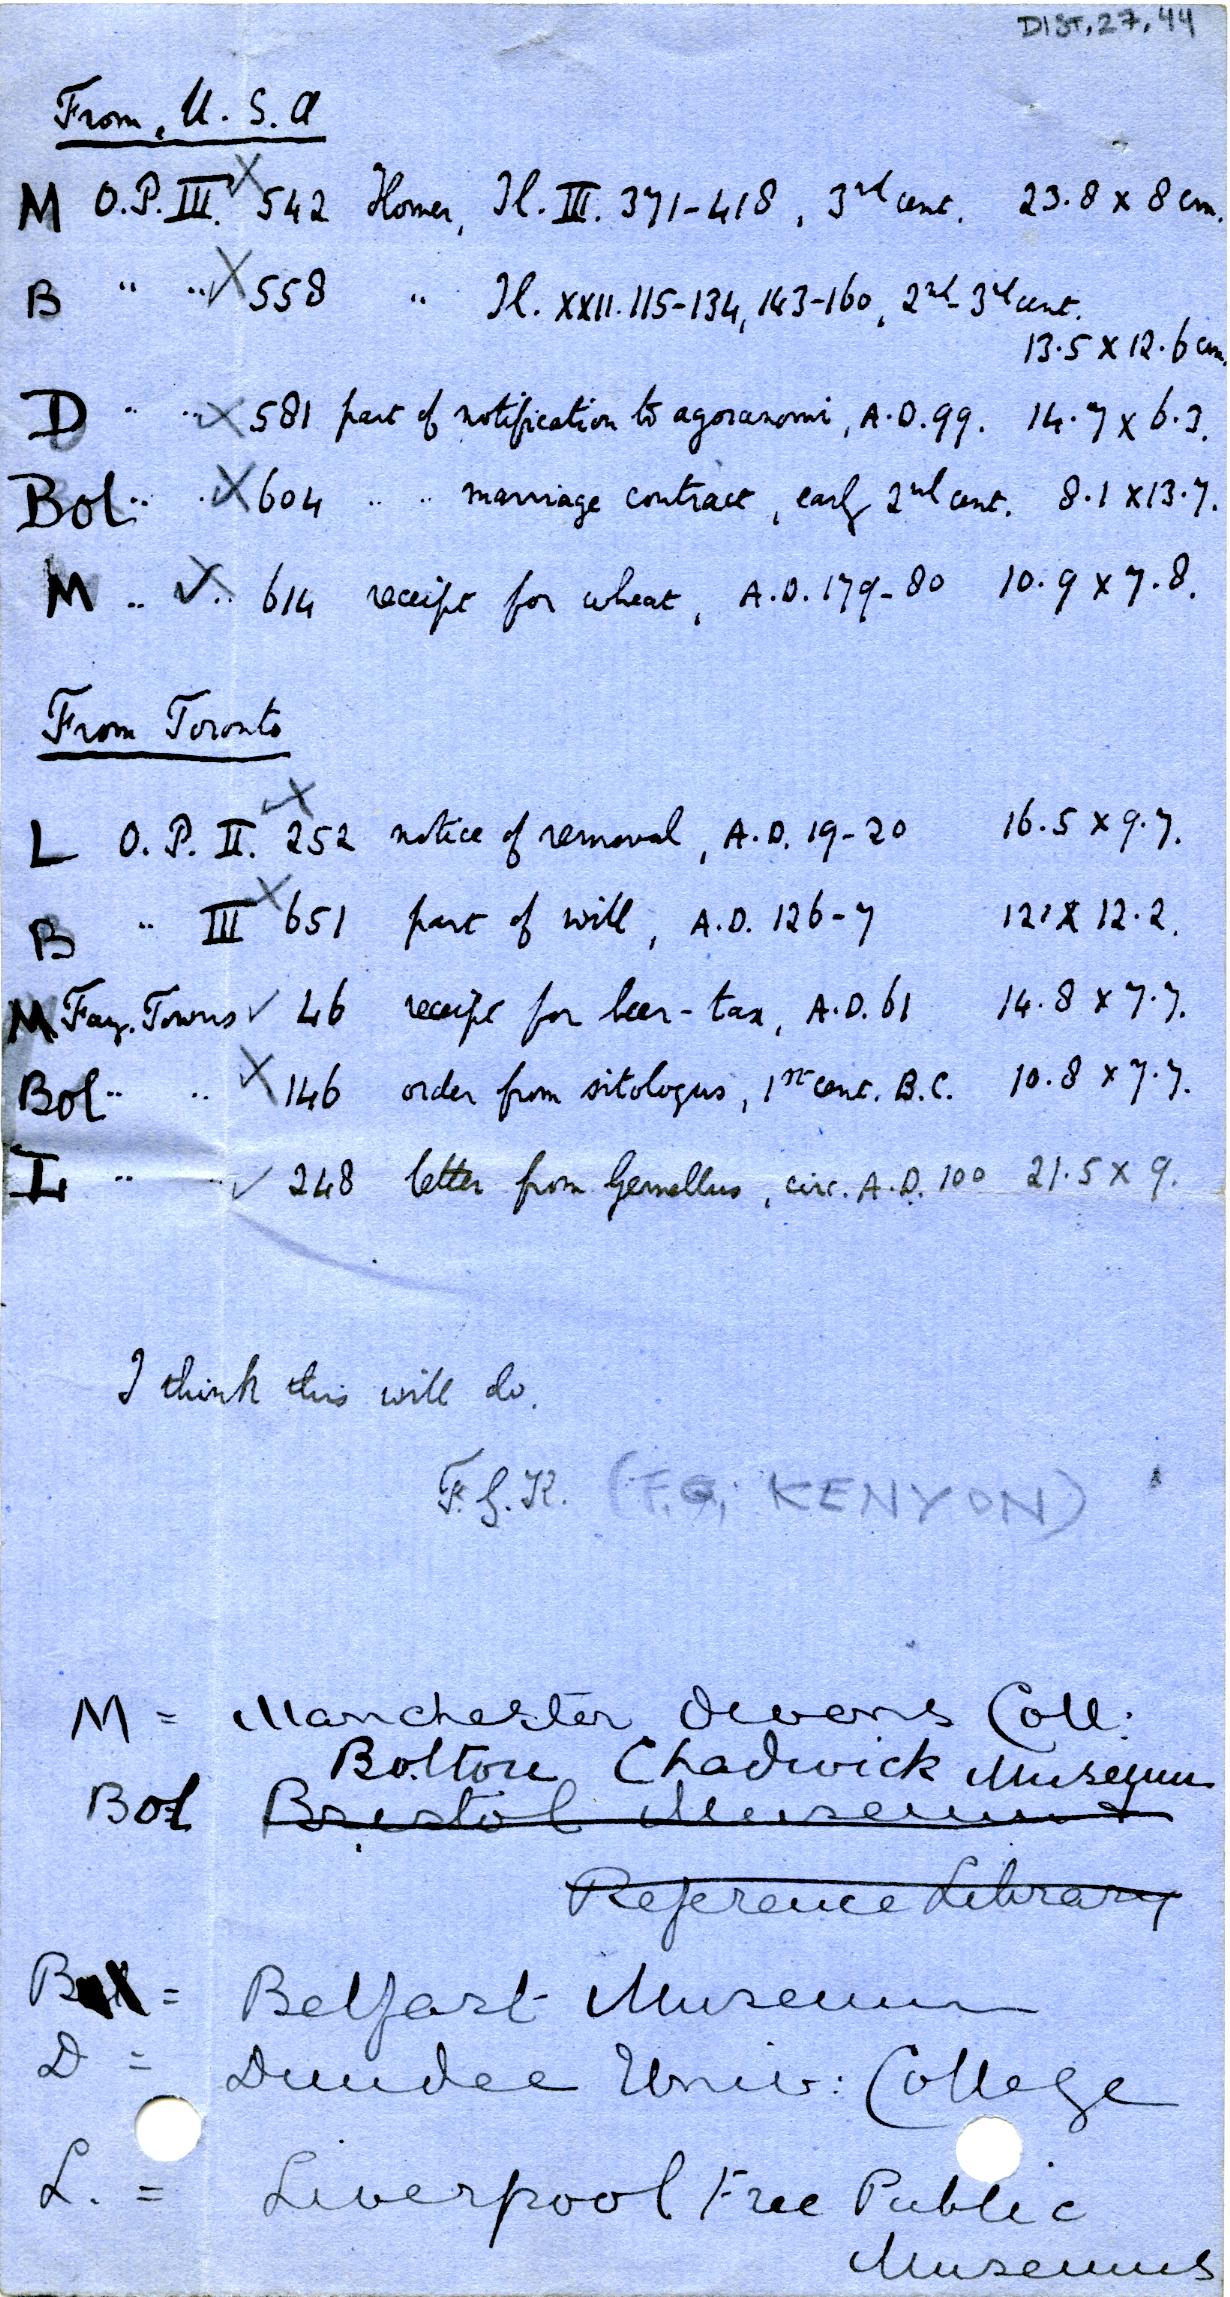 DIST.27.44
From U.S.A
M O.P. III. 542 Homer, Il. III. 371-418, 3rd cent. 23.8 x 8 cm.
B " " 558 " Il. XXII. 115-134, 143-160, 2nd-3rd cent.
13.5 x 12.6 cm.
D " " 581 part of notification to agoranomi, A.D. 99. 14.7 x 6.3.
Bol " " 604 " " marriage contract, early 2nd cent. 8.1 x 13.7.
M " " 614 receipt for wheat, A.D. 179-80 10.9 x 7.8.
From Toronto
L O.P. II. 252 notice of removal, A.D. 19-20 16.5 x 9.7.
B " III 651 part of will, A.D. 126-7 12. x 12.2.
M Fay. Towns ✓ 46 receipt for beer-tax, A.D. 61 14.8 x 7.7.
Bol " " 146 order from sitologus, 1st cent. B.C. 10.8 x 7.7.
L " " ✓ 248 letter from Gemellus, circ. A.D. 100 21.5 x 9.
I think this will do.
F.G.K. (F.G. KENYON)
M = Manchester Owens Coll:
Bolton Chadwick Museum
Bol Bristol Museum &
Reference Library
B = Belfast Museum
D = Dundee Univ: College
L. = Liverpool Free Public
Museums